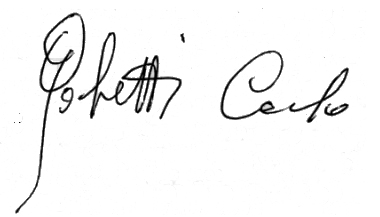 Gobetti Carlo